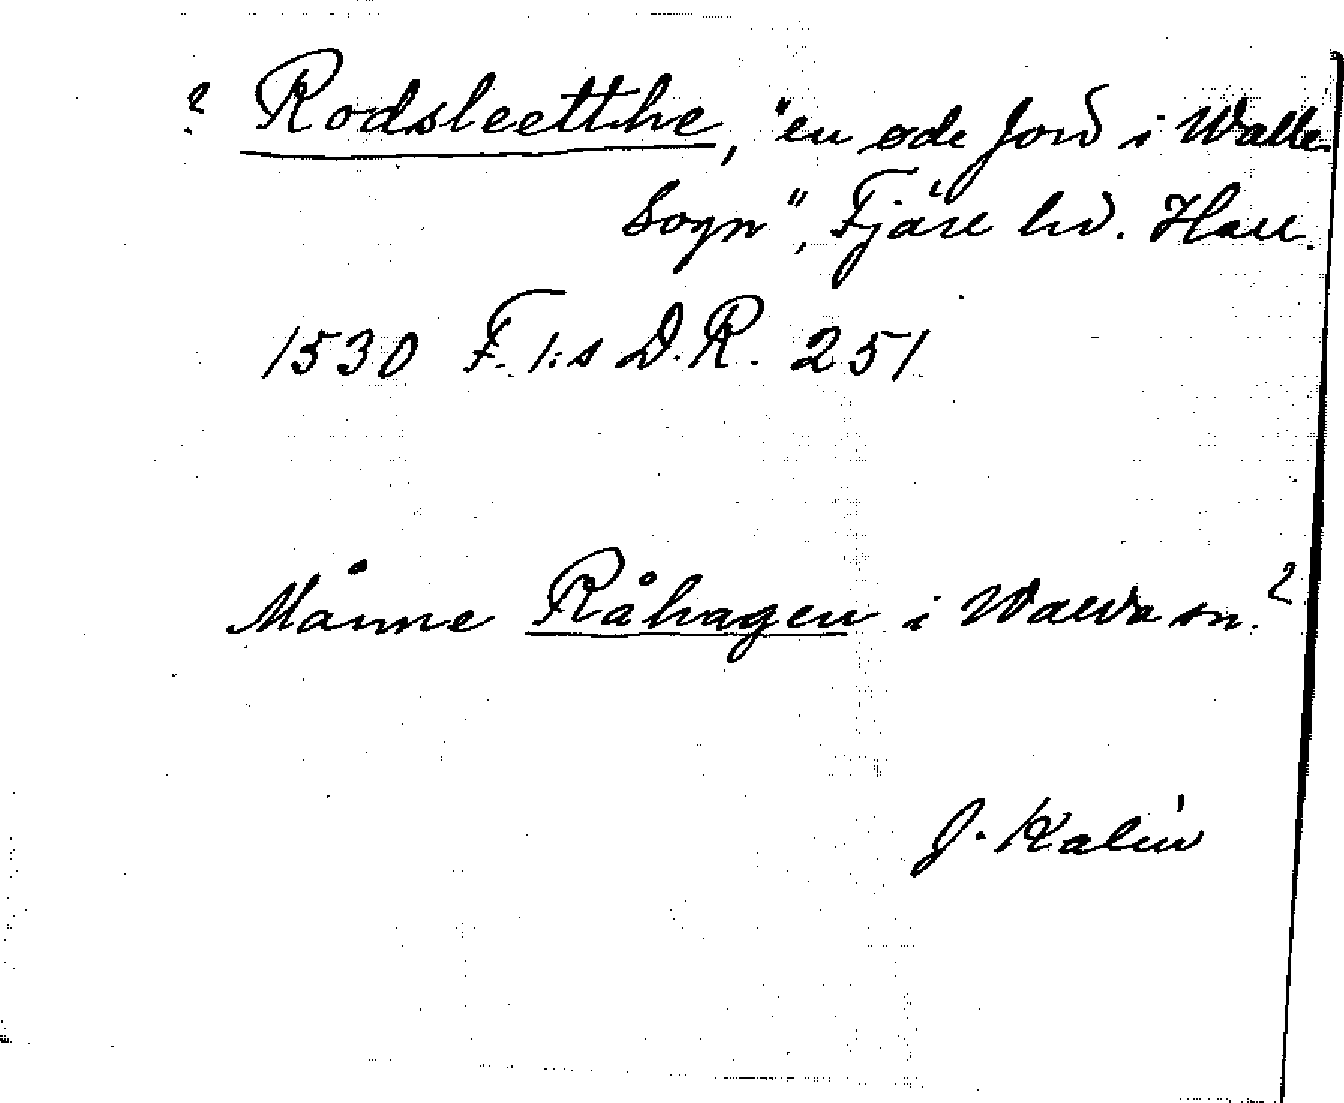 ? Rodsleetthe, "en øde Jord i Walle
Sogn", Fjäre hd. Hall.
1530 F. 1:s D.R. 251
Månne Råhagen i Walda sn.?
J. Kalén